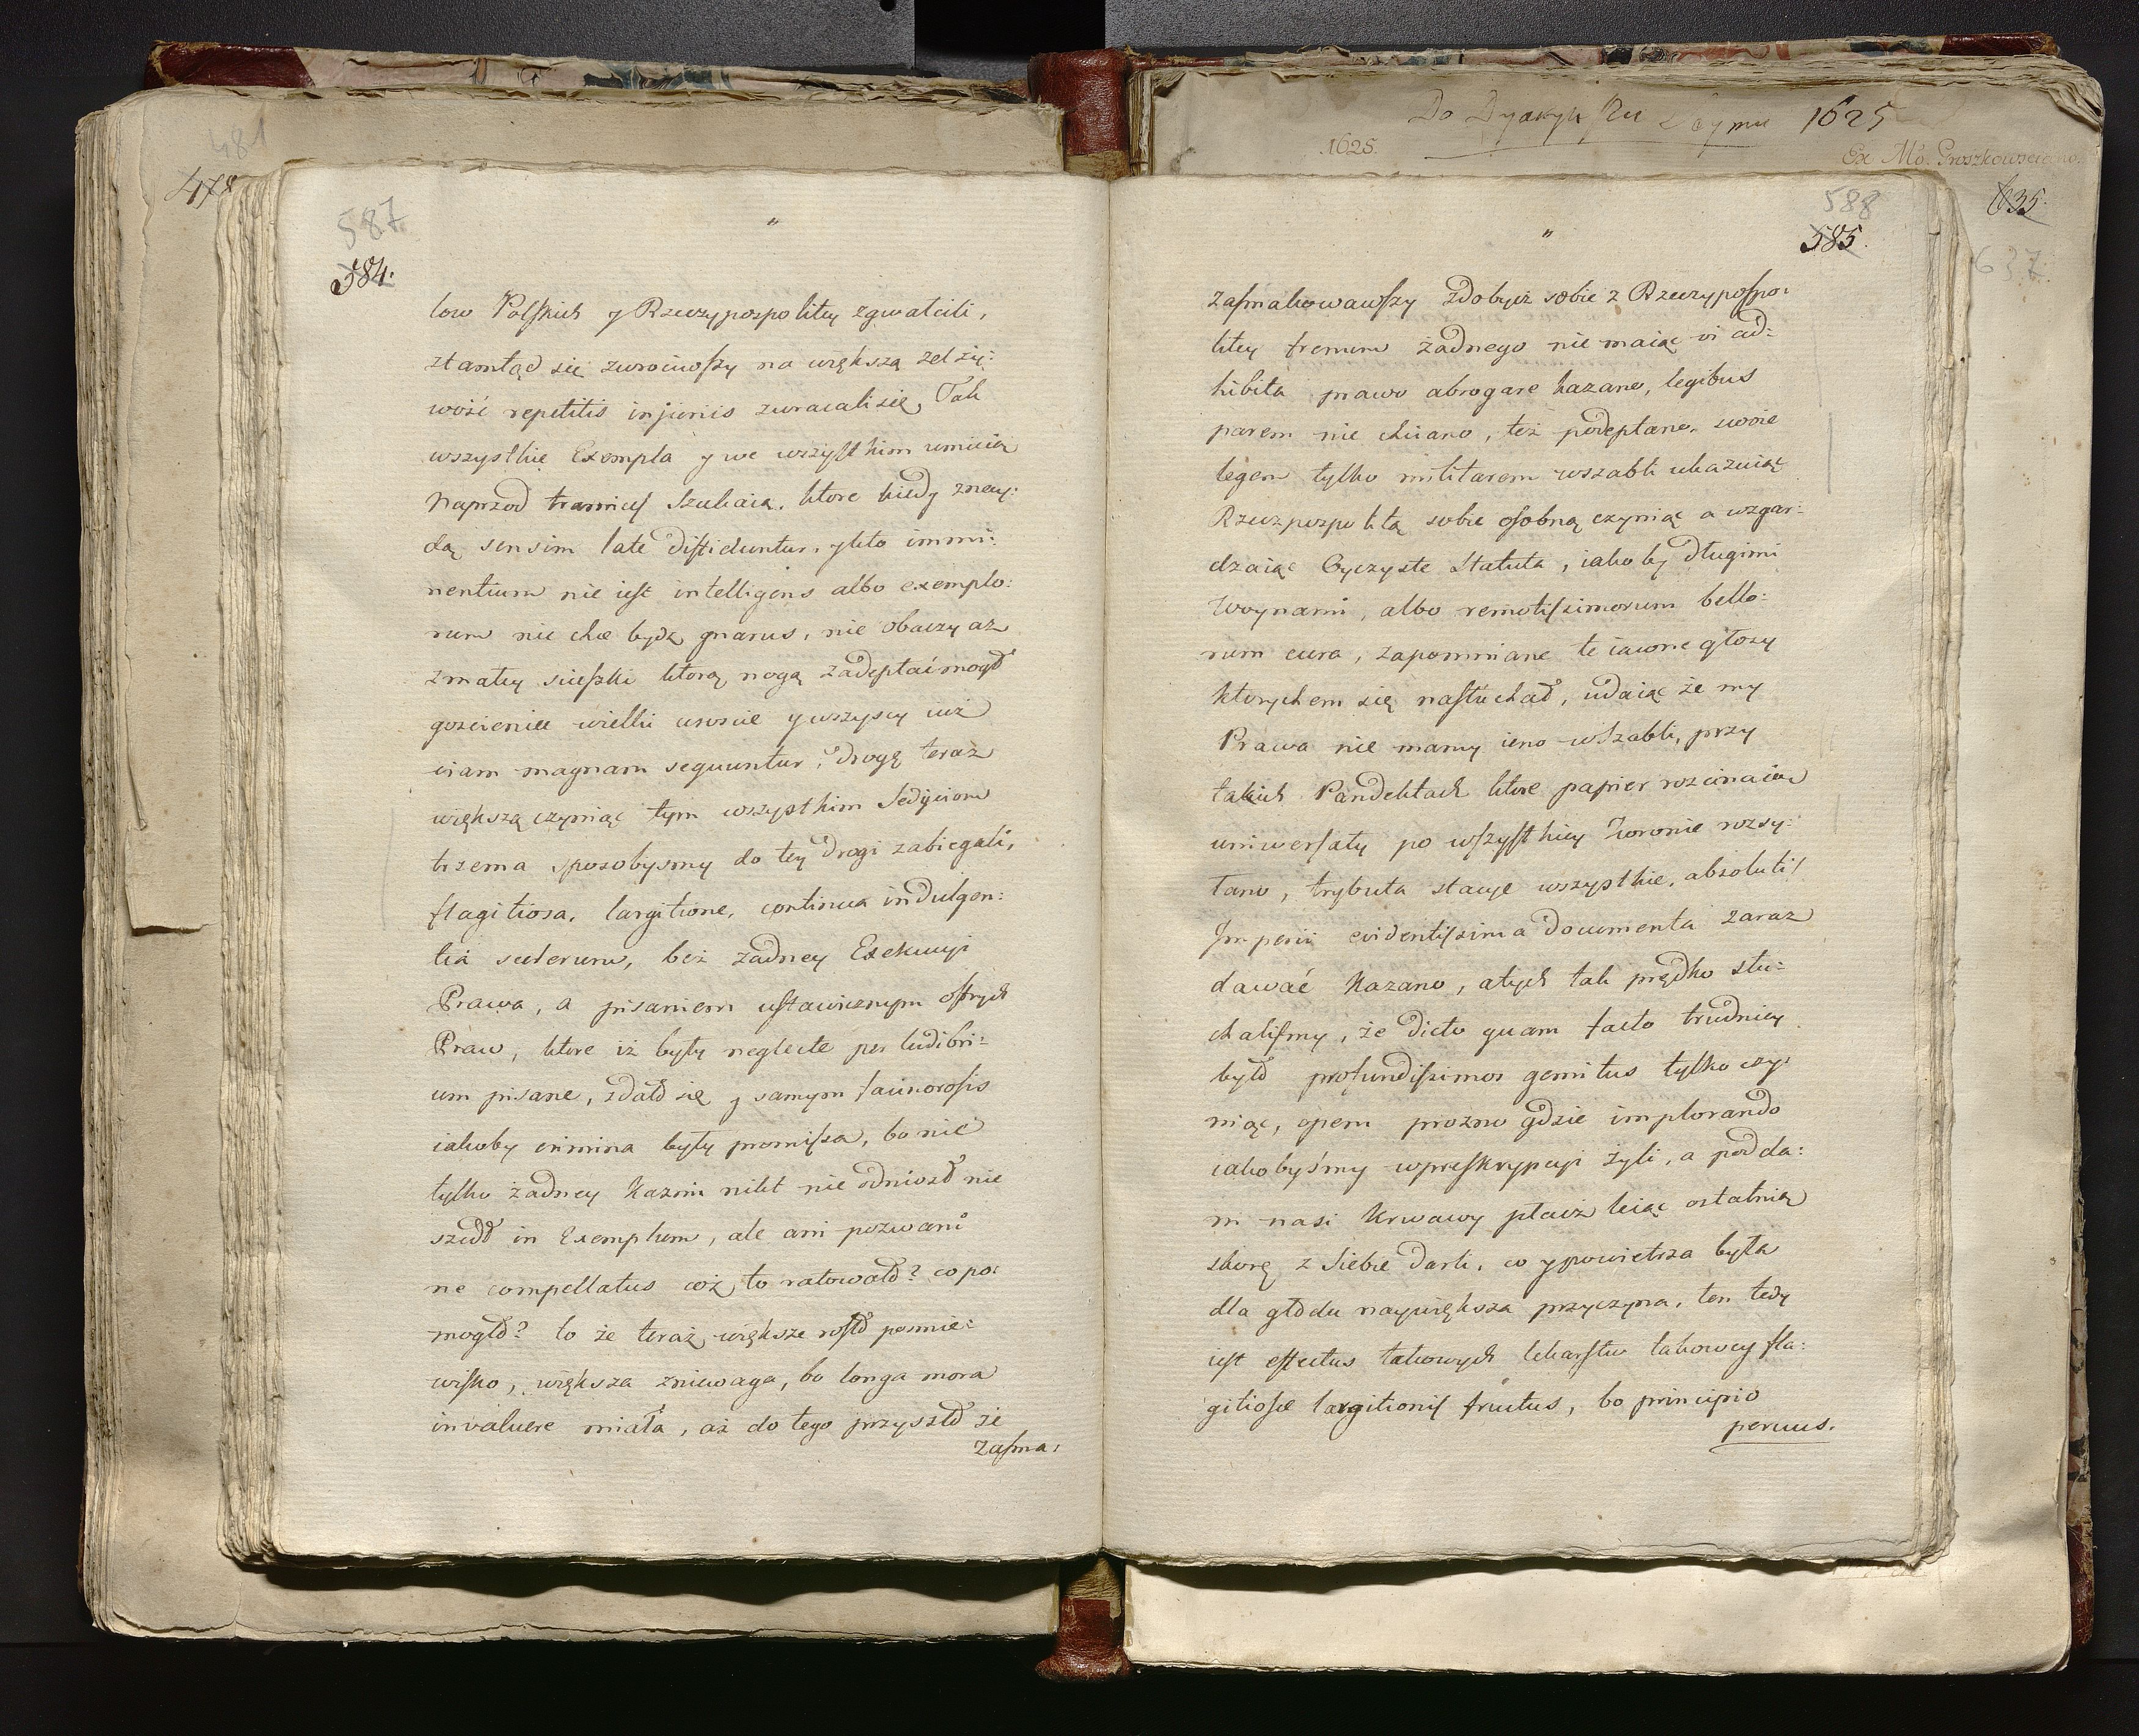 481
478
587
584.
"
low Polskich y Rzeczypospolitey zgwałcili,
ztamtąd się zwrociwszy na większą zelży:
wość repetitis injuriis zwracali się, Tak
wszystkie Exempla y we wszystkim umieią
Naprzod tramites szukaią, ktore kiedy znay:
dą sensim late diffiduntur, y kto immi:
nentium nie iest intelligens albo exemplo:
rum nie chce bydz gnarus, nie obaczy aż
z małey scieszki ktorą nogą zadeptać mogł
goscieniec wielki uroscie y wszyscy iuż
viam magnam sequuntur, drogę teraz
większą czyniąc tym wszystkim Sedyciom
trzema sposobysmy do tey drogi zabiegali,
flagitiosa, largitione, continua indulgen:
tia scelerum, bez żadney Exekucyi
Prawa, a pisaniem ustawicznym ostrych
Praw, ktore iż były neglecte per ludibri:
um pisane, zdało się y samym facinorosis
iakoby crimina były promissa, bo nie
tylko żadney kazni nikt nie odniosł nie
szedł in Exemplum, ale ani pozwani
ne compellatus coż to ratowało? co po:
mogło? to że teraz większe rosło posmie:
wisko, większa zniewaga, bo longa mora
invaluere miała, aż do tego przyszło że
zasma:
Do Dyaryuszu Seymu 1625
1625.
Ex Mo. Proszkowsciano.
635.
637.
588
585.
"
zasmakowawszy zdobycz sobie z Rzeczypospo:
litey frenum żadnego nie maiąc vi ad:
hibita prawo abrogare kazano, legibus
parem nie chciano, też podeptano, swoie
legem tylko militarem w szabli ukazuiąc
Rzeczpospolitą sobie osobną czyniąc a wzgar:
dzaiąc Oyczyste Statuta, iakoby długimi
Woynami, albo remotissimorum bello:
rum cura, zapomniane te iawne głosy
ktorychem się nasłuchał, udaiąc że my
Prawa nie mamy ieno w Szabli, przy
takich Pandektach ktore papier rozcinaią
uniwersały po wszystkiey Koronie rozsy:
łano, trybuta stacye wszystkie, absoluti
Imperii evidentissima documenta zaraz
dawać kazano, a tych tak prędko słu:
chalismy, że dicto quam facto trudniey
było profundissimos gemitus tylko czy:
niąc, opem prozno gdzie implorando
iakobyśmy w preskrypcyi żyli, a podda:
ni nasi krwawy płacz leiąc ostatnią
skorę z siebie darli, co y powietrza była
dla głodu naywiększa przyczyna, ten tedy
iest effectus takowych lekarstw takowey fla:
gitiose largitionis fructus, bo principio
peruus.